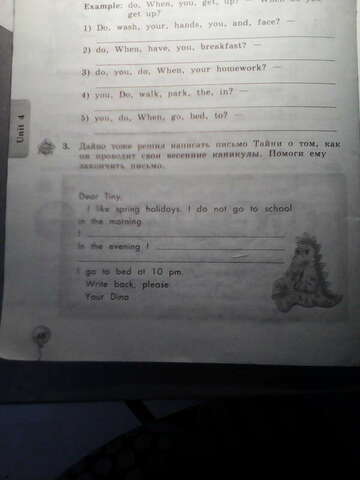 Example: do, When, you, get, up? — When do you
get up?
1) Do, wash, your, hands, you, and, face? —
2) do, When, have, you, breakfast? —
3) do, you, do, When, your homework? —
4) you, Do, walk, park, the, in? —
5) you, do, When, go, bed, to? —
Unit 4
3. Дайно тоже решил написать письмо Тайни о том, как
он проводит свои весенние каникулы. Помоги ему
закончить письмо.
Dear Tiny,
I like spring holidays. I do not go to school
in the morning.
I
In the evening I
I go to bed at 10 pm.
Write back, please.
Your Dino